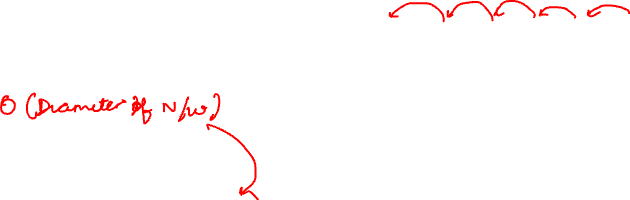 O (Diameter of N/w)